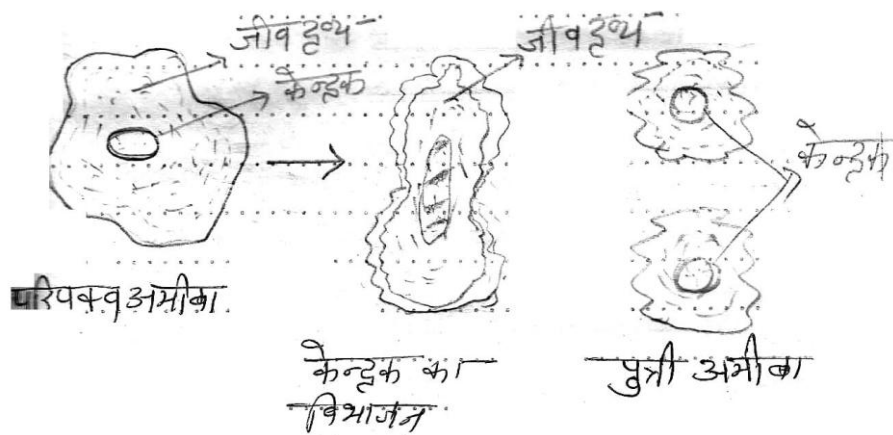 जीव द्रव्य
केन्द्रक
जीव द्रव्य
केन्द्रक
परिपक्व अमीबा
केन्द्रक का
विभाजन
पुत्री अमीबा